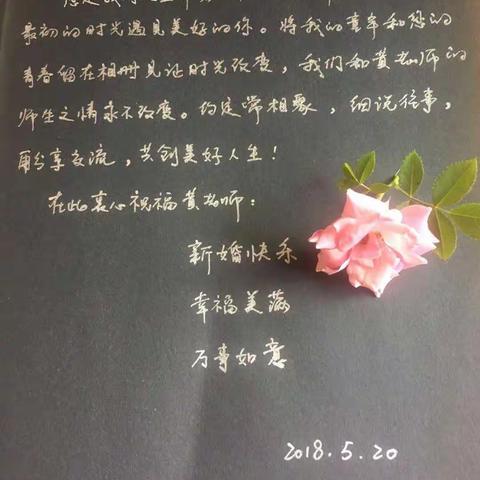 最初的时光遇见美好的你。将我的童年和您的
青春留在相册见证时光改变，我们和黄老师的
师生之情永不改变。约定常相聚，细说往事，
分享交流，共创美好人生！
在此衷心祝福黄老师：
新婚快乐
幸福美满
万事如意
2018.5.20